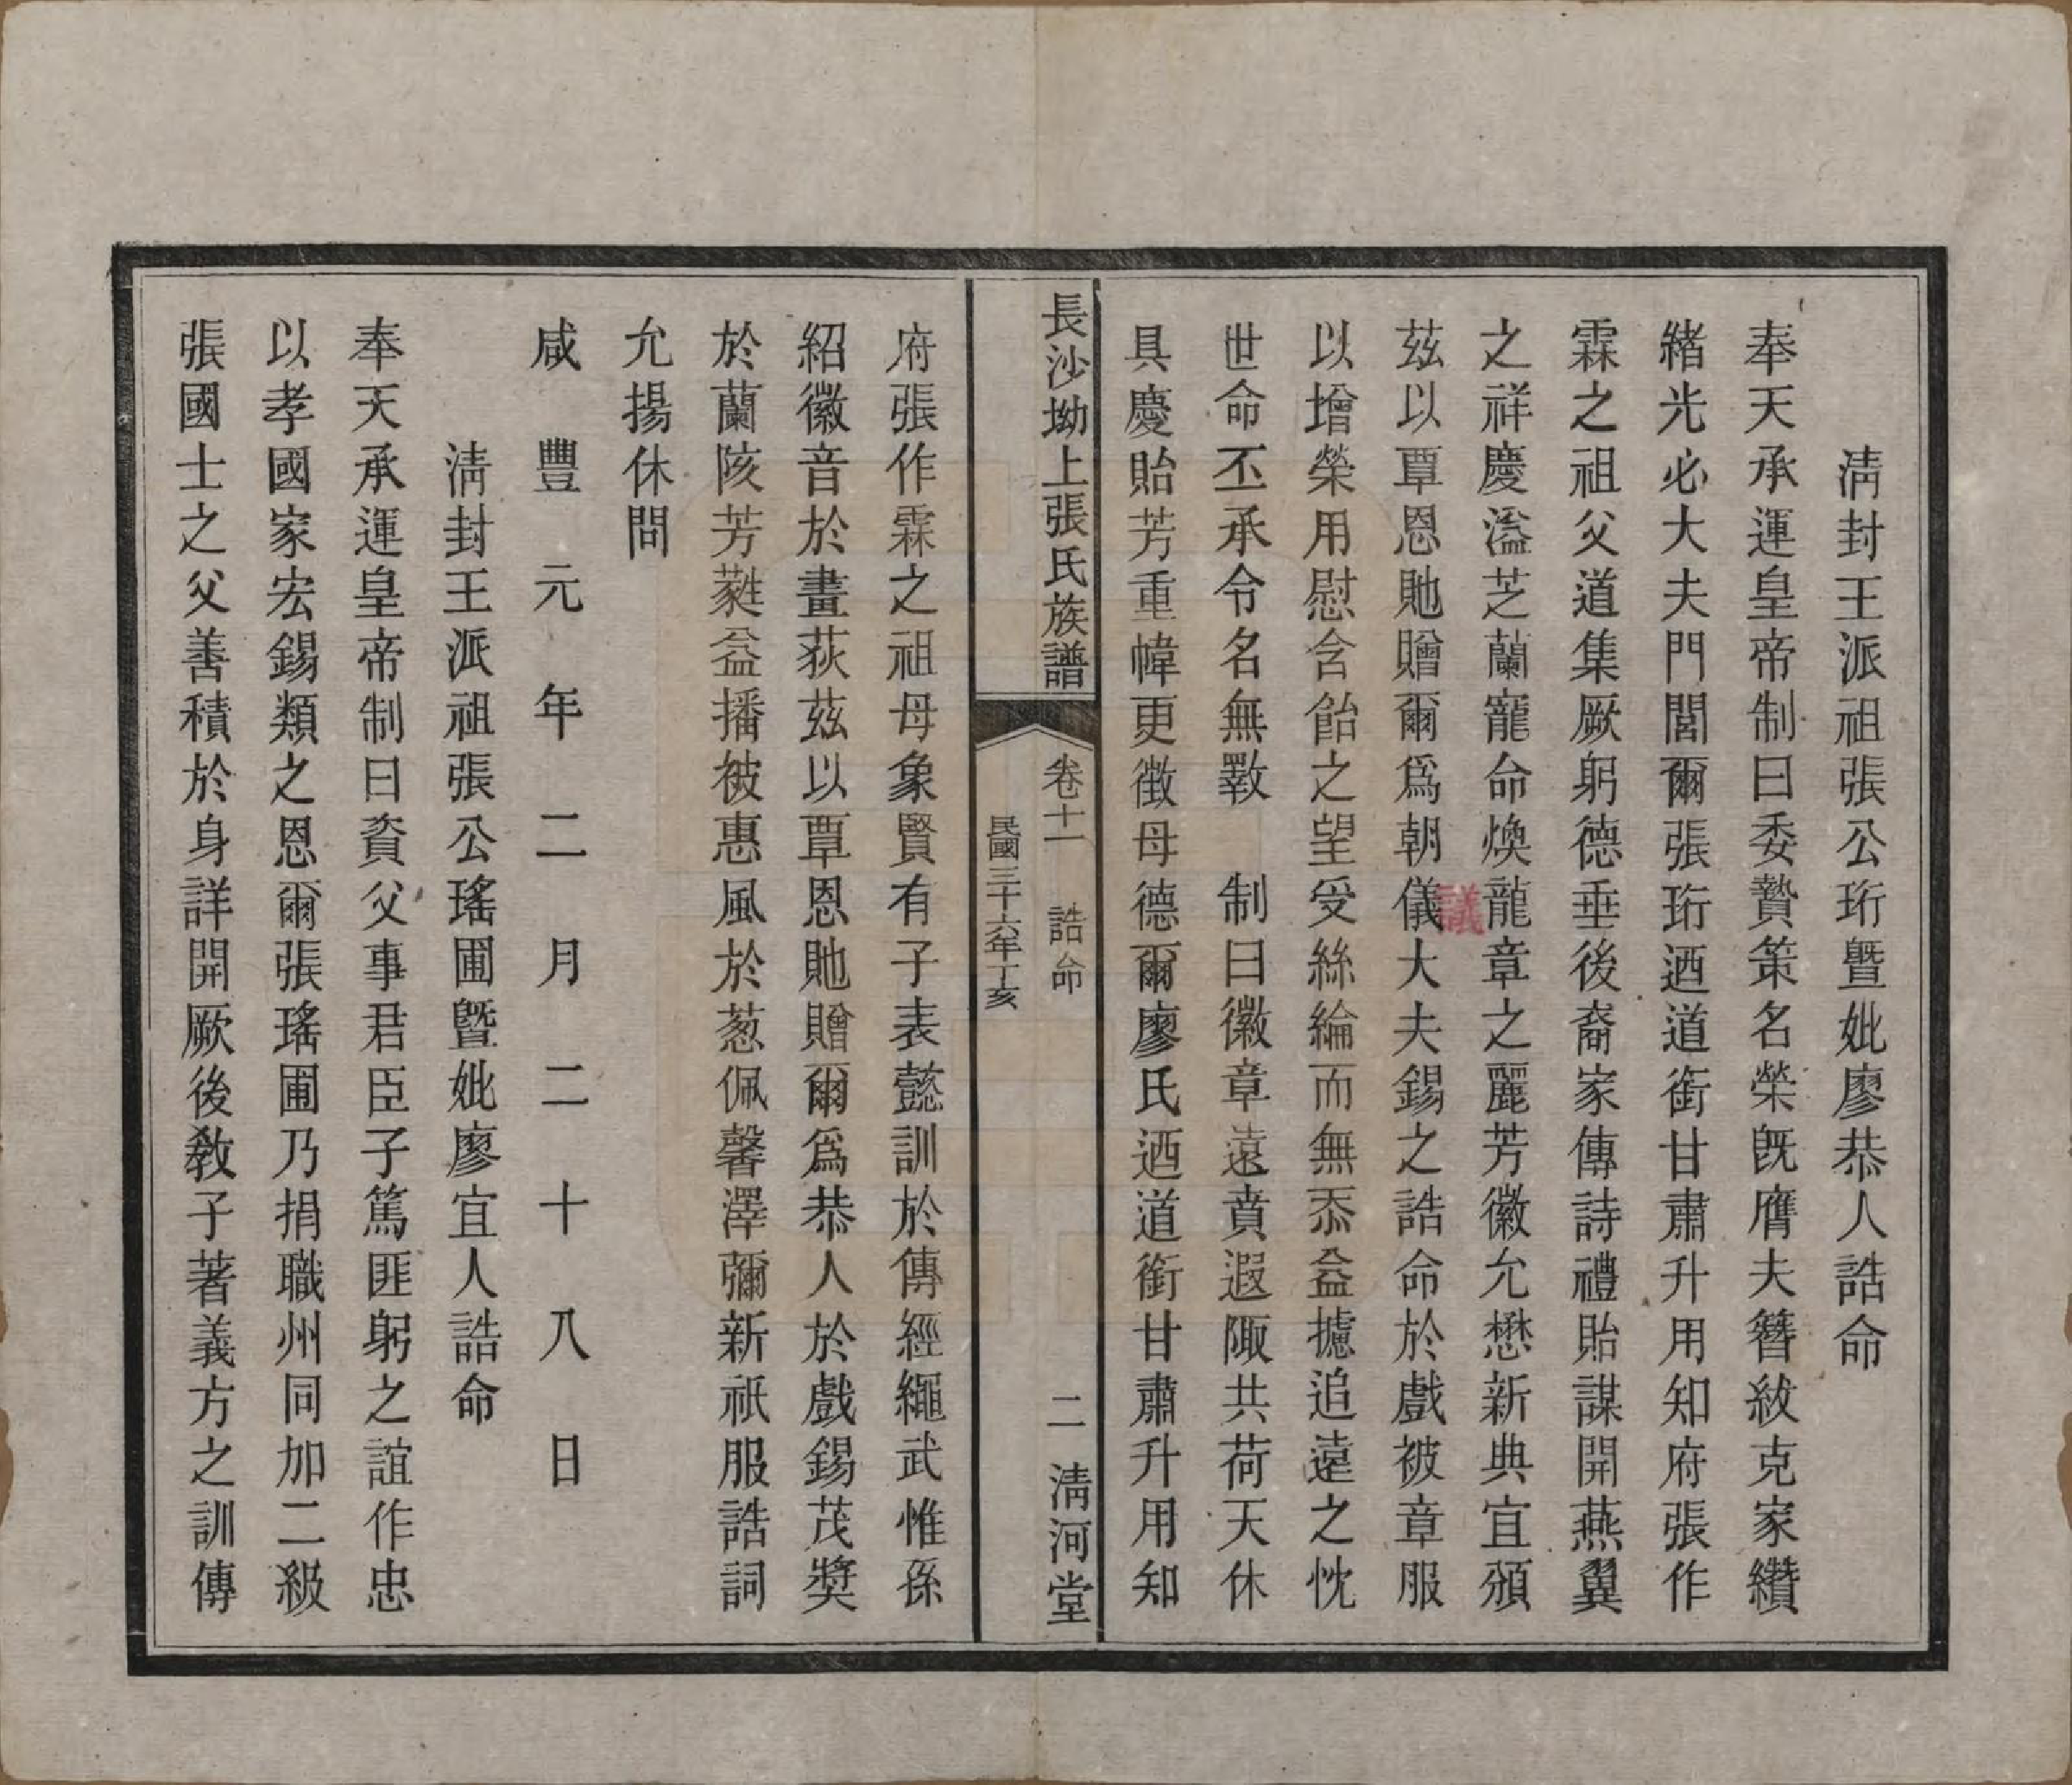 淸封王派祖張公珩暨妣廖恭人誥命
奉天承運皇帝制曰委贄策名榮旣膺夫簪紱克家纘
緒光必大夫門閭爾張珩迺道銜甘肅升用知府張作
霖之祖父道集厥躬德垂後裔家傳詩禮貽謀開燕翼
之祥慶溢芝蘭寵命煥龍章之麗芳徽允懋新典宜頒
茲以覃恩貤贈爾爲朝儀大夫錫之誥命於戲被章服
議
以增榮用慰含飴之望受絲綸而無忝益攄追遠之忱
世命丕承令名無斁　制曰徽章遠賁遐陬共荷天休
具慶貽芳重幃更徵母德爾廖氏迺道銜甘肅升用知
長沙㘭上張氏族譜
卷十一　誥命
二　淸河堂
民國三十六年丁亥
府張作霖之祖母象賢有子表懿訓於傳經繩武惟孫
紹徽音於畫荻茲以覃恩貤贈爾爲恭人於戲錫茂獎
於蘭陔芳蕤益播被惠風於蔥佩馨澤彌新祇服誥詞
允揚休問
咸豐元年二月二十八日
淸封王派祖張公瑤圃暨妣廖宜人誥命
奉天承運皇帝制曰資父事君臣子篤匪躬之誼作忠
以孝國家宏錫類之恩爾張瑤圃乃捐職州同加二級
張國士之父善積於身詳開厥後敎子著義方之訓傳